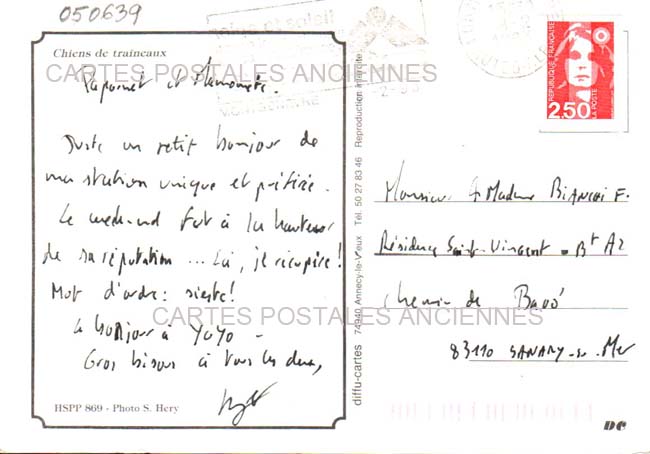 050639
Chiens de traineaux
CARTES POSTALES ANCIENNES
Papounet et
Juste un petit bonjour de
ma station unique et préférée.
Le week-end fut à la hauteur
de sa réputation ... Ici, je récupère!
Mot d'ordre: sieste!
Le bonjour à YoYo -
CARTES POSTALES ANCIENNES
Gros bisous à tous les deux,
HSPP 869 - Photo S. Hery
diffu-cartes 74940 Annecy-le-Vieux Tél. 50 27 83 46 Reproduction interdite
REPUBLIQUE FRANÇAISE
2,50
LA POSTE
Monsieur & Madame BIANCHI F.
Résidence Saint-Vincent - Bt A2
Chemin de
83110 SANARY-su-Mer
DC